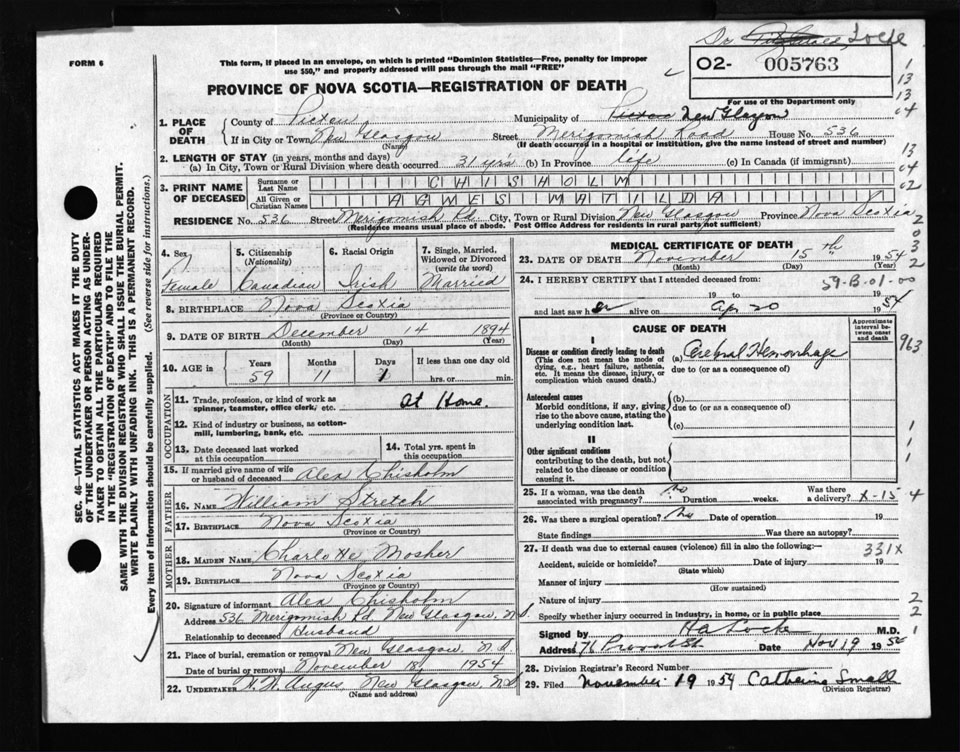 Dr Locke
FORM 6
This form, if placed in an envelope, on which is printed "Dominion Statistics—Free, penalty for improper
use $50," and properly addressed will pass through the mail "FREE"
02- 005763
PROVINCE OF NOVA SCOTIA—REGISTRATION OF DEATH
For use of the Department only
1. PLACE OF DEATH
County of Pictou Municipality of Pictou New Glasgow
If in City or Town New Glasgow Street Merigomish Road House No. 536
(Name) (If death occurred in a hospital or institution, give the name instead of street and number)
2. LENGTH OF STAY (in years, months and days)
(a) In City, Town or Rural Division where death occurred 31 yrs (b) In Province life (c) In Canada (if immigrant)
3. PRINT NAME OF DECEASED
Surname or Last Name CHISHOLM
All Given or Christian Names AGNES MATILDA
RESIDENCE No. 536 Street Merigomish Rd. City, Town or Rural Division New Glasgow Province Nova Scotia
(Residence means usual place of abode. Post Office Address for residents in rural parts not sufficient)
4. Sex Female
5. Citizenship (Nationality) Canadian
6. Racial Origin Irish
7. Single, Married, Widowed or Divorced (write the word) Married
8. BIRTHPLACE Nova Scotia
(Province or Country)
9. DATE OF BIRTH December 14 1894
(Month) (Day) (Year)
10. AGE in Years Months Days If less than one day old
59 11 1 hrs. or min.
OCCUPATION
11. Trade, profession, or kind of work as spinner, teamster, office clerk, etc. At Home.
12. Kind of industry or business, as cotton-mill, lumbering, bank, etc.
13. Date deceased last worked at this occupation
14. Total yrs. spent in this occupation
15. If married give name of wife or husband of deceased Alex Chisholm
FATHER
16. NAME William Stretch
17. BIRTHPLACE Nova Scotia
MOTHER
18. MAIDEN NAME Charlotte Mosher
19. BIRTHPLACE Nova Scotia
(Province or Country)
20. Signature of informant Alex Chisholm
Address 536 Merigomish Rd New Glasgow, N.S.
Relationship to deceased Husband
21. Place of burial, cremation or removal New Glasgow, N.S
Date of burial or removal November 18, 1954
22. UNDERTAKER Angus, New Glasgow, NS
(Name and address)
MEDICAL CERTIFICATE OF DEATH
23. DATE OF DEATH November 15th 1954
(Month) (Day) (Year)
24. I HEREBY CERTIFY that I attended deceased from: 59-B-01-00
19 to 19
and last saw her alive on Ap 20 1954
CAUSE OF DEATH
Approximate interval between onset and death
I
Disease or condition directly leading to death
(This does not mean the mode of dying, e.g., heart failure, asthenia, etc. It means the disease, injury, or complication which caused death.)
(a) Cerebral Hemorrhage
due to (or as a consequence of)
Antecedent causes
Morbid conditions, if any, giving rise to the above cause, stating the underlying condition last.
(b)
due to (or as a consequence of)
(c)
II
Other significant conditions
contributing to the death, but not related to the disease or condition causing it.
963
25. If a woman, was the death associated with pregnancy? no Duration weeks. Was there a delivery? X-15
26. Was there a surgical operation? no Date of operation 19
State findings Was there an autopsy?
27. If death was due to external causes (violence) fill in also the following:— 331X
Accident, suicide or homicide? Date of injury 19
(State which)
Manner of injury
(How sustained)
Nature of injury
Specify whether injury occurred in industry, in home, or in public place
Signed by Locke M.D.
Address 176 Provost St Date Nov 19 1954
28. Division Registrar's Record Number
29. Filed November 19 1954 Catherine Small
(Division Registrar)
SEC. 46—VITAL STATISTICS ACT MAKES IT THE DUTY
OF THE UNDERTAKER OR PERSON ACTING AS UNDER-
TAKER TO OBTAIN ALL THE PARTICULARS REQUIRED
IN THE "REGISTRATION OF DEATH" AND TO FILE THE
SAME WITH THE DIVISION REGISTRAR WHO SHALL ISSUE THE BURIAL PERMIT.
WRITE PLAINLY WITH UNFADING INK. THIS IS A PERMANENT RECORD.
Every item of information should be carefully supplied. (See reverse side for instructions.)
1
13
13
04
13
04
02
2
0
3
2
1
1
1
4
2
2
1